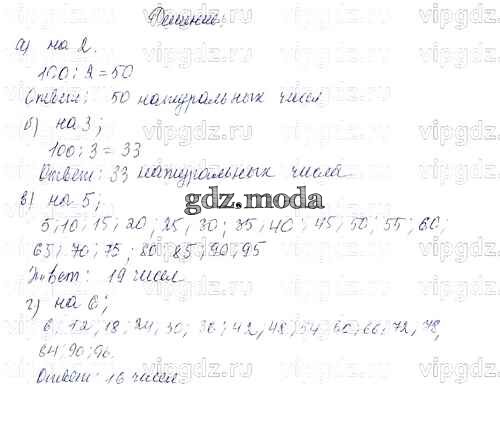 Решение.
а) на 2.
100 : 2 = 50
Ответ: 50 натуральных чисел
б) на 3;
100 : 3 = 33
Ответ: 33 натуральных числа
gdz.moda
в) на 5;
5; 10; 15; 20; 25; 30; 35; 40; 45; 50; 55; 60;
65; 70; 75; 80; 85; 90; 95
Ответ: 19 чисел
г) на 6;
6, 12, 18; 24, 30; 36; 42, 48; 54, 60; 66; 72, 78,
84; 90; 96.
Ответ: 16 чисел.
vipgdz.ru